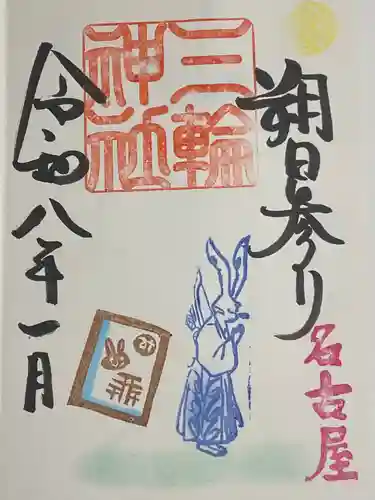 朔日参り
名古屋
三輪
神社
令和八年一月